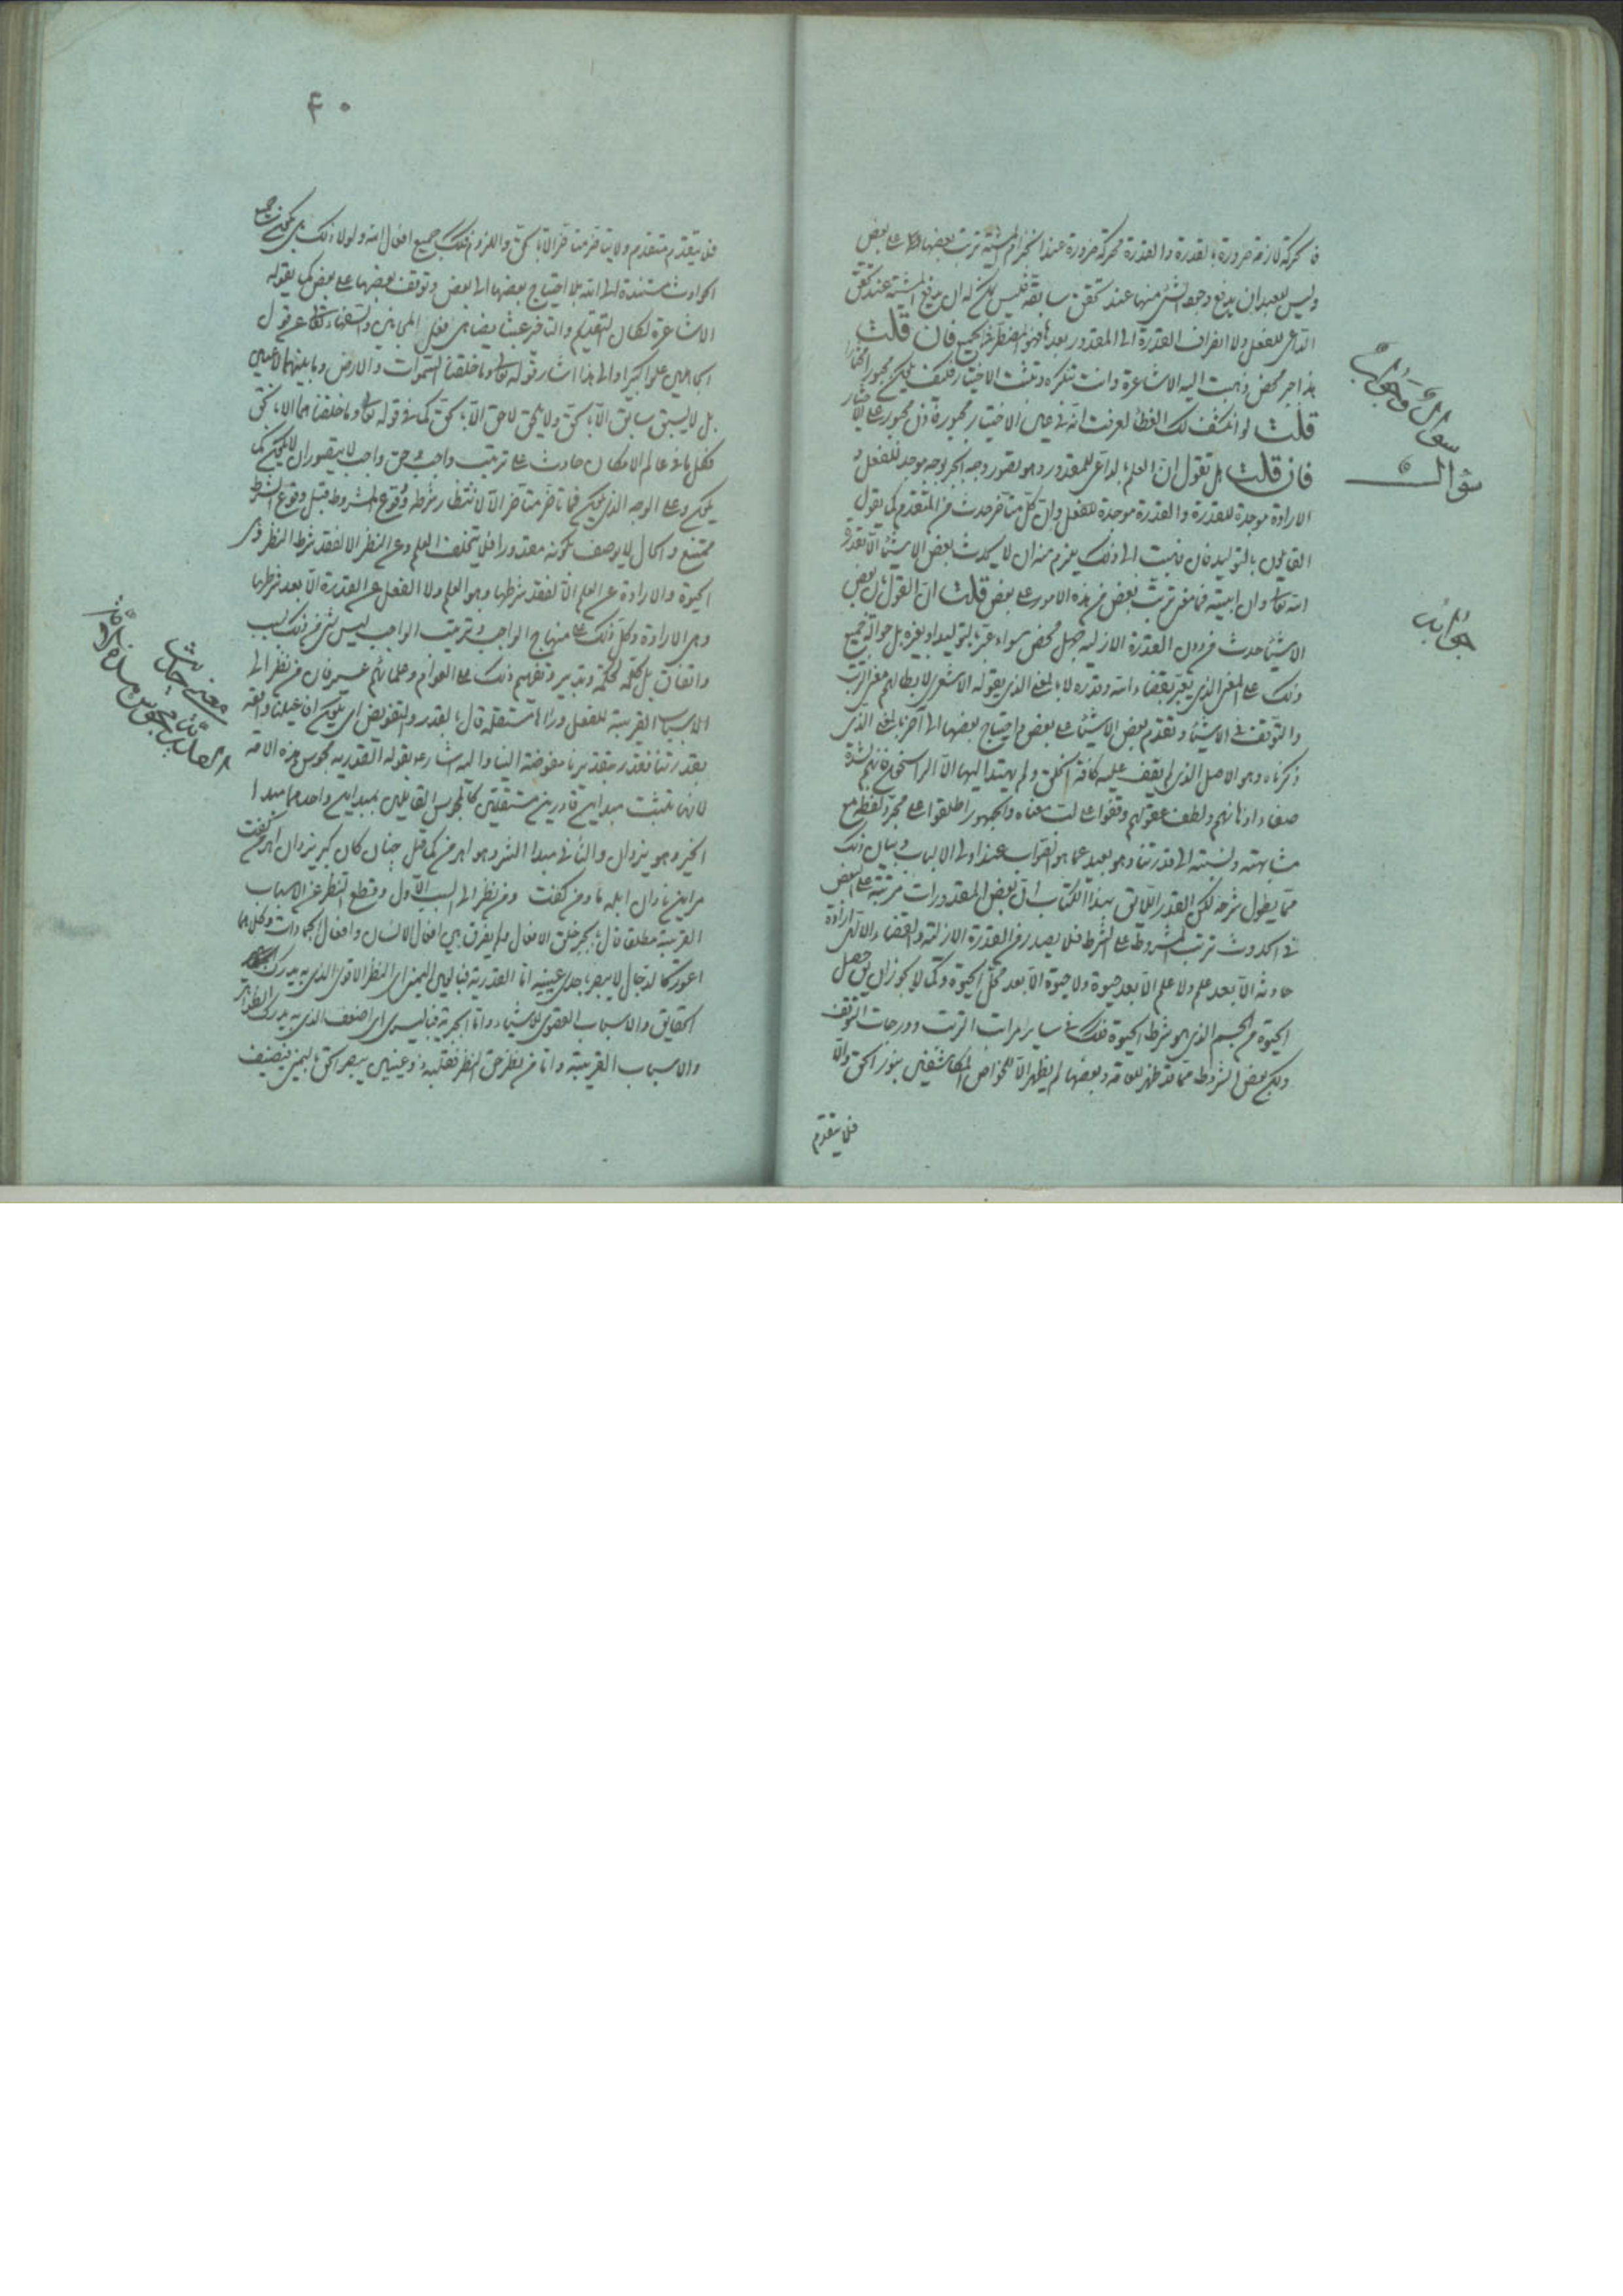 فالحركة لازمة ضرورة بالقدرة والقدرة محركة ضرورة عند انجزام المشية ترتب بعضها على بعض
وليس للعبد ان يدفع وجود الشئ منها عند تحقق سابقه فليس يمكنه ان يدفع المشية عند تحقق
الداعى للفعل ولا انصراف القدرة الى المقدور بعدها فهو المضطر فى الجميع فان قلت
هذا جبر محض ذهبت اليه الاشاعرة وانت تنكره وتثبت الاختيار فكيف يكون مجبورا مختارا
قلت لو انكشف لك الغطاء لعرفت انه فى عين الاختيار مجبور فاذن مجبور على الاختيار
فان قلت هل تقول ان العلم بالداعى للمقدور وهو تصور وجه الخير يوجد للفعل و
الارادة موجدة للقدرة والقدرة موجدة للفعل وان كل متأخر حدث من المتقدم كما يقول
القائلون بالتوليد فان ذهبت الى ذلك يلزم منه ان لا يحدث بعض الاشياء الا بقدرة
الله تعالى وان ابيته فما معنى ترتب بعض من هذه الامور على بعض قلت ان القول بان بعض
الاشياء حدث من دون القدرة الازلية جهل محض سواء عبر بالتوليد او بغيره بل حوالة جميع
ذلك على المعنى الذى يعبر بقضاء الله وقدره لا بالمعنى الذى يقوله الاشعرى لابطالهم معنى الترتب
والتوقف فى الاشياء وتقدم بعض الاشياء على بعض واحتياج بعضها الى آخر بالمعنى الذى
ذكرناه وهو الاصل الذى لم يقف عليه كافة الخلق ولم يهتد اليها الا الراسخون فانهم لشدة
صفاء اذهانهم ولطف عقولهم وقفوا على لب معناه والجمهور اطلقوا على مجرد لفظه مع
مشابهته ونسبته الى قدرتنا وهو بعيد عما هو الصواب عند اولى الالباب وبيان ذلك
مما يطول شرحه لكن القدر اللائق بهذا الكتاب ان بعض المقدورات مرتبة على البعض
فى الحدوث ترتب المشروط على الشرط فلا يصدر من القدرة الازلية والقضاء الالهى ارادة
حادثة الا بعد علم ولا علم الا بعد حيوة ولا حيوة الا بعد محل الحيوة وكما لا يجوز ان يق حصل
الحيوة من الجسم الذى هو شرط الحيوة فكذلك فى ساير مراتب الترتب ودرجات التوقف
ولكن بعض الشروط مما قد ظهر للعامة وبعضها لم يظهر الا للخواص المكاشفين بنور الحق والا
فلا يتقدم
سؤال وجواب
سؤال
جواب
۴۰
فلا يتقدم متقدم ولا يتأخر متأخر الا بالحق واللزوم وكذلك جميع افعال الله ولولا ذلك بل يكون جميع
الحوادث مستندة الى الله بلا احتياج بعضها الى بعض وتوقف بعضها على بعض كما يقوله
الاشاعرة لكان التقديم والتأخير عبثا يضاهى فعل المجانين والسفهاء تعالى عن قول
الجاهلين علوا كبيرا والى هذا اشار قوله تعالى وما خلقنا السموات والارض وما بينهما لاعبين
بل لا يسبق سابق الا بالحق ولا يلحق لاحق الا بالحق كما فى قوله تعالى وما خلقناهما الا بالحق
فكل ما فى عالم الامكان حادث على ترتيب واجب وحق واجب لا يتصور ان لا يكون كما
يكون وعلى الوجه الذى يكون فما تأخر متأخر الا لانتظار شرطه ووقوع المشروط قبل وقوع الشرط
ممتنع والمحال لا يوصف بكونه مقدورا فلا يتخلف العلم عن النظر الا لفقد شرط النظر وهى
الحيوة والارادة عن العلم الا لفقد شرطها وهو العلم ولا الفعل عن القدرة الا بعد شرطها
وهى الارادة وكل ذلك على منهاج الواجب وترتيب الواجب ليس شئ من ذلك ببخت
واتفاق بل كله لحكمة وتدبير وتفهيم ذلك على العوام وعلمائهم عسير فان من نظر الى
الاسباب القريبة للفعل ورآها مستقلة قال بالقدر والتفويض اى يكون افاعيلنا واقعة
بقدرتنا فقدر بتقديرنا مفوضة الينا واليه اشار بقوله القدرية مجوس هذه الامة
لانها تثبت مبدأين قادرين مستقلين كالمجوس القائلين بمبدأين واحدهما مبدأ
الخير وهو يزدان والثانى مبدأ الشر وهو اهرمن كما قيل چنان كان گبر يزدان اهرمن گفت
مر اين نادان ابله ما ومن گفت ومن نظر الى السبب الاول وقطع النظر عن الاسباب
القريبة مطلقا قال بالجبر وخلق الافعال ولم يفرق بين افعال الانسان وافعال الجمادات وكلاهما
اعور كالدجال لا يبصر باحدى عينيه اما القدرية فبالعين اليمنى اى النظر الاقوى الذى به يدرك
الحقايق والاسباب القصوى للاشياء واما الجبرية فباليسرى اى اضعف الذى به يدرك الظواهر
والاسباب القريبة واما من نظر حق النظر فقلبه ذو عينين يبصر الحق باليمنى فيضيف
معنى حديث
القدرية مجوس هذه الامة